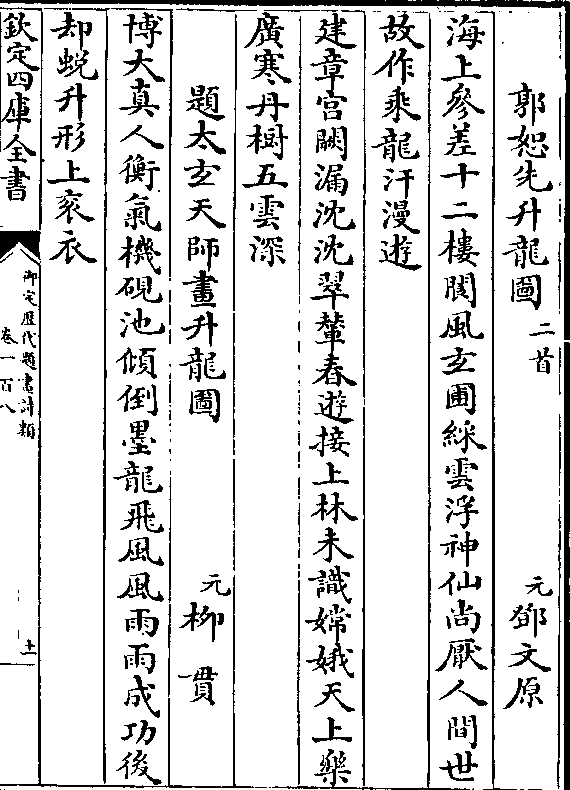 郭恕先升龍圖 二首 元 鄧文原
海上參差十二樓閬風玄圃綵雲浮神仙尚厭人間世
故作乘龍汗漫遊
建章宮闕漏沈沈翠輦春遊接上林未識嫦娥天上樂
廣寒丹樹五雲深
題太玄天師畫升龍圖 元 柳貫
博大真人衡氣機硯池傾倒墨龍飛風風雨雨成功後
却蛻升形上衮衣
欽定四庫全書 御定歷代題畫詩類 卷一百八 十一